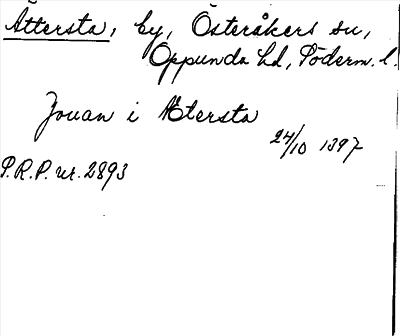 Ättersta, by, Österåkers sn,
Oppunda hd, Söderm. l.
Jouan i Ætersta
24/10 1397
P.R.P. nr. 2893